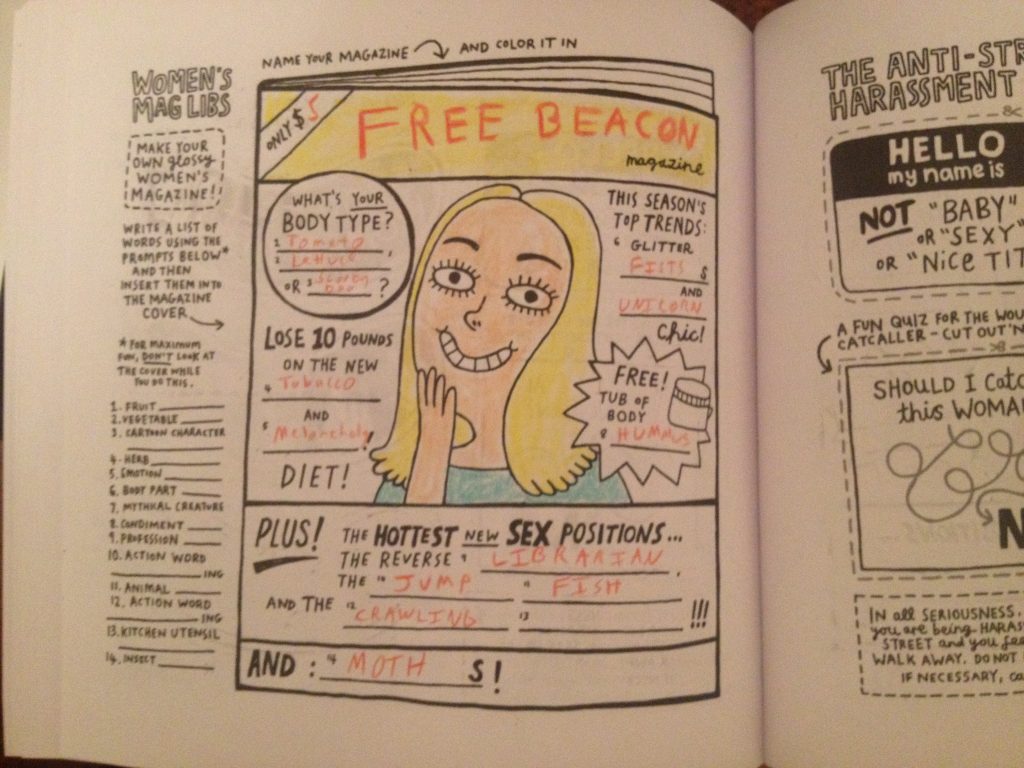 NAME YOUR MAGAZINE AND COLOR IT IN
WOMEN'S
MAG LIBS
MAKE YOUR
OWN glossy
WOMEN'S
MAGAZINE!
WRITE A LIST OF
WORDS USING THE
PROMPTS BELOW*
AND THEN
INSERT THEM INTO
THE MAGAZINE
COVER
*FOR MAXIMUM
FUN, DON'T LOOK AT
THE COVER WHILE
YOU DO THIS.
1. FRUIT
2. VEGETABLE
3. CARTOON CHARACTER
4. HERB
5. EMOTION
6. BODY PART
7. MYTHICAL CREATURE
8. CONDIMENT
9. PROFESSION
10. ACTION WORD
ING
11. ANIMAL
12. ACTION WORD
ING
13. KITCHEN UTENSIL
14. INSECT
ONLY $5
FREE BEACON
magazine
WHAT'S YOUR
BODY TYPE?
1 Tomato,
2 Lettuce
OR 3 ?
LOSE 10 POUNDS
ON THE NEW
4 Tobacco
AND
5 Melancholy!
DIET!
THIS SEASON'S
TOP TRENDS:
6 GLITTER
FISTS S
AND
UNICORN
Chic!
FREE!
TUB OF
BODY
8 HUMMUS
PLUS! THE HOTTEST NEW SEX POSITIONS...
THE REVERSE 9 LIBRARIAN,
THE 10 JUMP 11 FISH
AND THE 12 CRAWLING 13 !!!
AND: 14 MOTH S!
THE ANTI-STR
HARASSMENT
HELLO
my name is
NOT "BABY"
OR "SEXY"
OR "NiCe TIT
A FUN QUIZ FOR THE WOU
CATCALLER - CUT OUT 'N
SHOULD I CatC
this WOMA
N
IN all SERIOUSNESS,
you are being HARAS
STREET and you fee
WALK AWAY. DO NOT
IF NECESSARY, ca